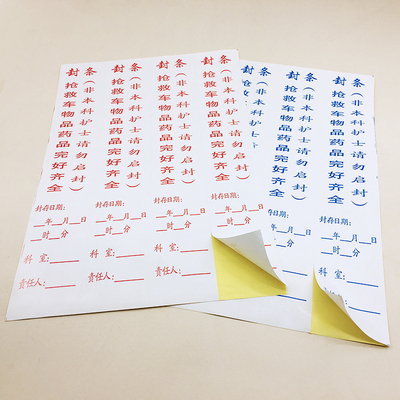 封条
抢救车物品药品完好齐全
（非本科护士请勿启封）
封存日期:
__年__月__日
__时__分
科 室:____
责任人:____
封条
抢救车物品药品完好齐全
（非本科护士请勿启封）
封存日期:
__年__月__日
__时__分
科 室:____
责任人:____
封条
抢救车物品药品完好齐全
（非本科护士请勿启封）
封存日期:
__年__月__日
__时__分
科 室:____
责任人:____
封条
抢救车物品药品完好齐全
（非本科护士请勿启封）
封存日期:
封条
抢救车物品药品完好齐全
（非本科护士请勿启封）
封存日期:
__年__月__日
__时__分
科 室:____
封条
抢救车物品药品完好齐全
（非本科护士请勿启封）
封存日期:
__年__月__日
__时__分
科 室:____